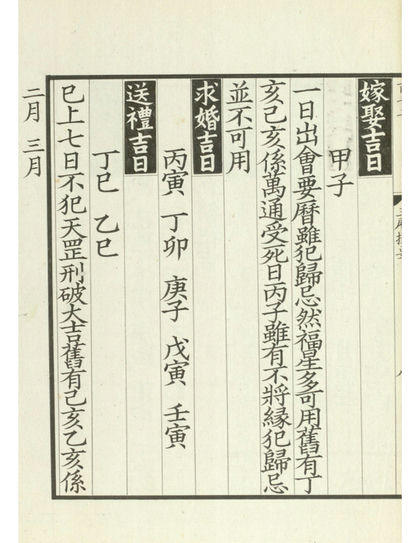 嫁娶吉日
甲子
一日出會要曆雖犯歸忌然福星多可用舊有丁
亥己亥係萬通受死日丙子雖有不將緣犯歸忌
並不可用
求婚吉日
丙寅 丁卯 庚子 戊寅 壬寅
送禮吉日
丁巳 乙巳
巳上七日不犯天罡刑破大吉舊有己亥乙亥係
二月 三月